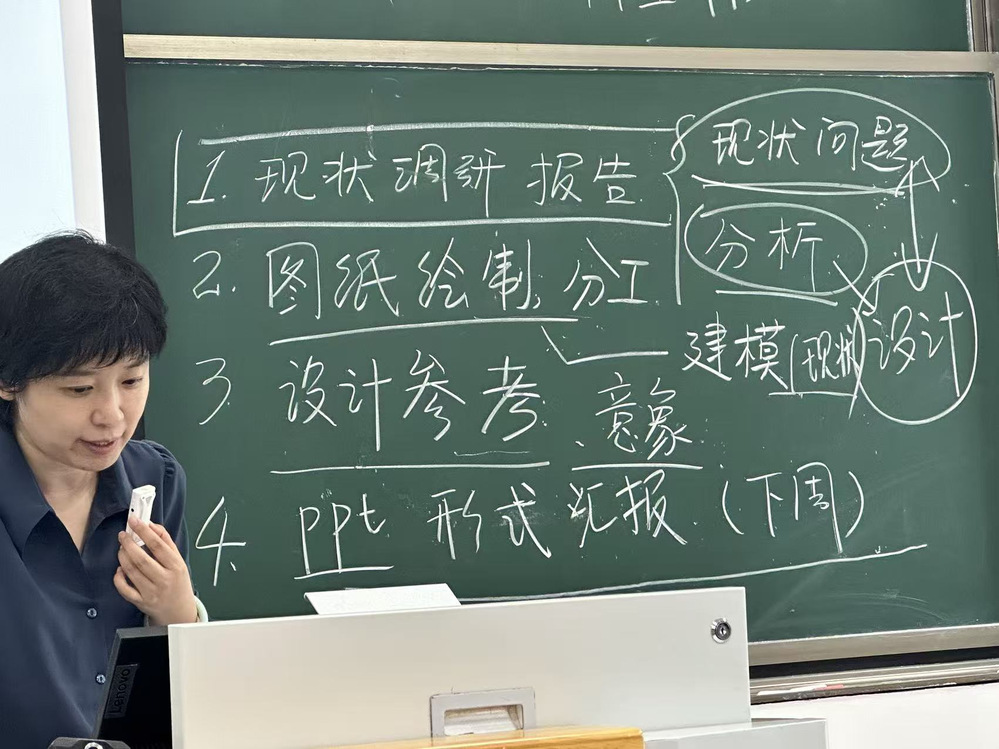 1. 现状调研 报告
2. 图纸绘制. 分工
3. 设计参考. 意象
4. PPt 形式 汇报. (下周)
现状问题
分析
建模(现状)
设计
Lenovo